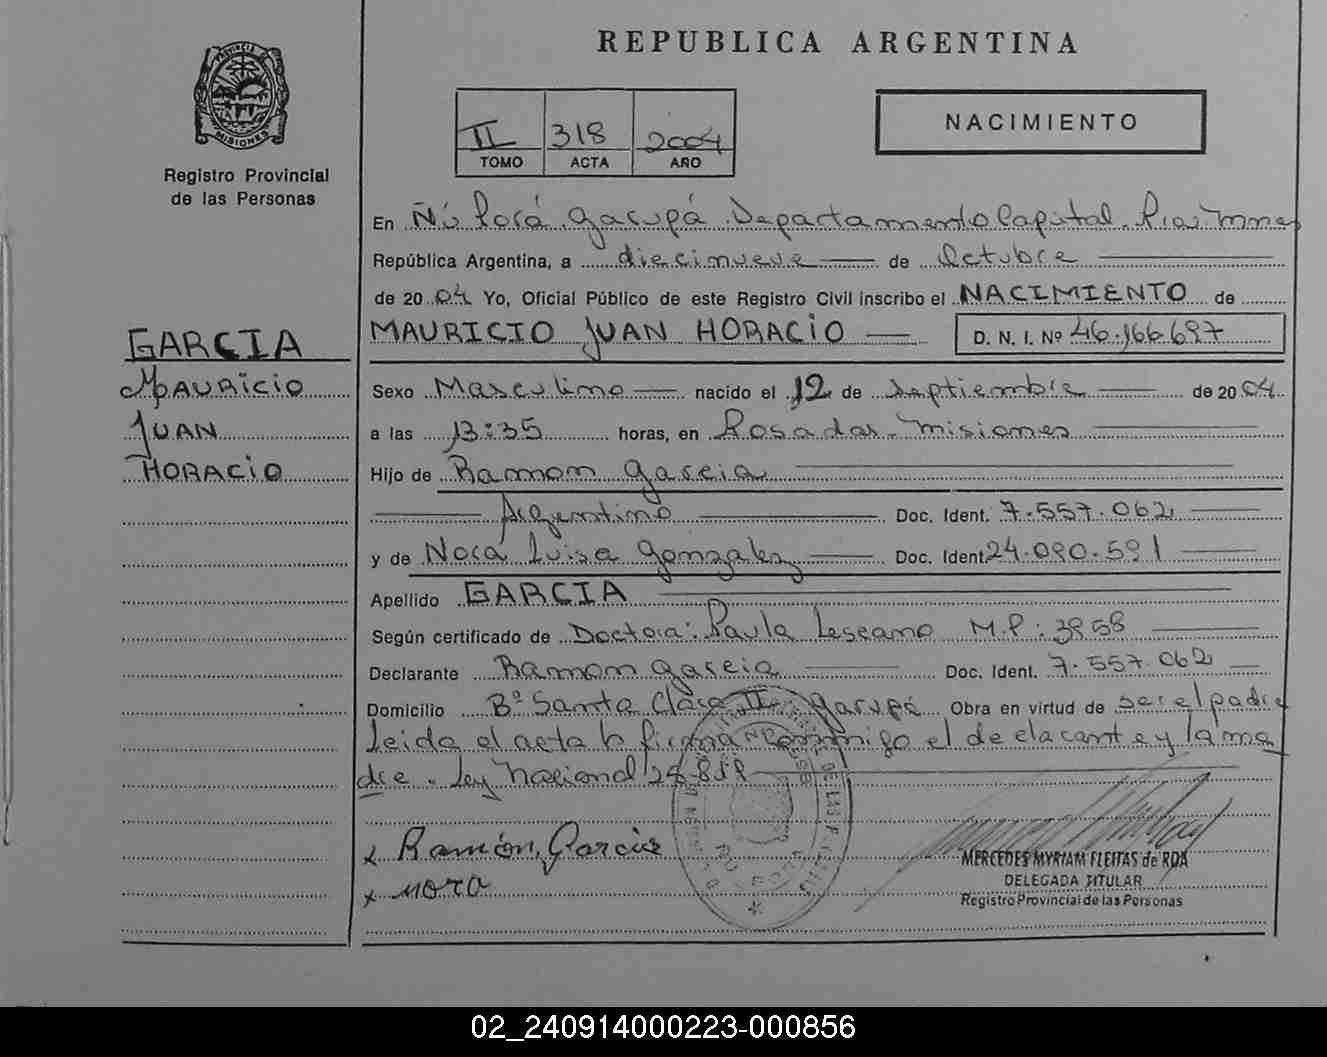 REPUBLICA ARGENTINA
PROVINCIA DE
MISIONES
Registro Provincial
de las Personas
II 318 2004
TOMO ACTA AÑO
NACIMIENTO
En Ñú Porá Garupá Departamento Capital
República Argentina, a diecinueve de Octubre
de 20 04 Yo, Oficial Público de este Registro Civil inscribo el NACIMIENTO de
MAURICIO JUAN HORACIO D. N. I. Nº 46.166.697
GARCIA
MAURICIO
JUAN
HORACIO
Sexo Masculino nacido el 12 de Septiembre de 20 04
a las 13:35 horas, en Posadas. Misiones
Hijo de Ramon Garcia
Argentino Doc. Ident. 7.557.062
y de Nora Luisa Gonzalez Doc. Ident 24.090.591
Apellido GARCIA
Según certificado de Doctora: Paula Lescano M.P: 3958
Declarante Ramon Garcia Doc. Ident. 7.557.062
Domicilio Bº Santa Clara II Garupá Obra en virtud de ser el padre
Leida el acta la firma conmigo el declarante y la ma
dre. Ley Nacional
x Ramón, Garcia
x NORA
MERCEDES MYRIAM FLEITAS de RDA
DELEGADA TITULAR
Registro Provincial de las Personas
02_240914000223-000856